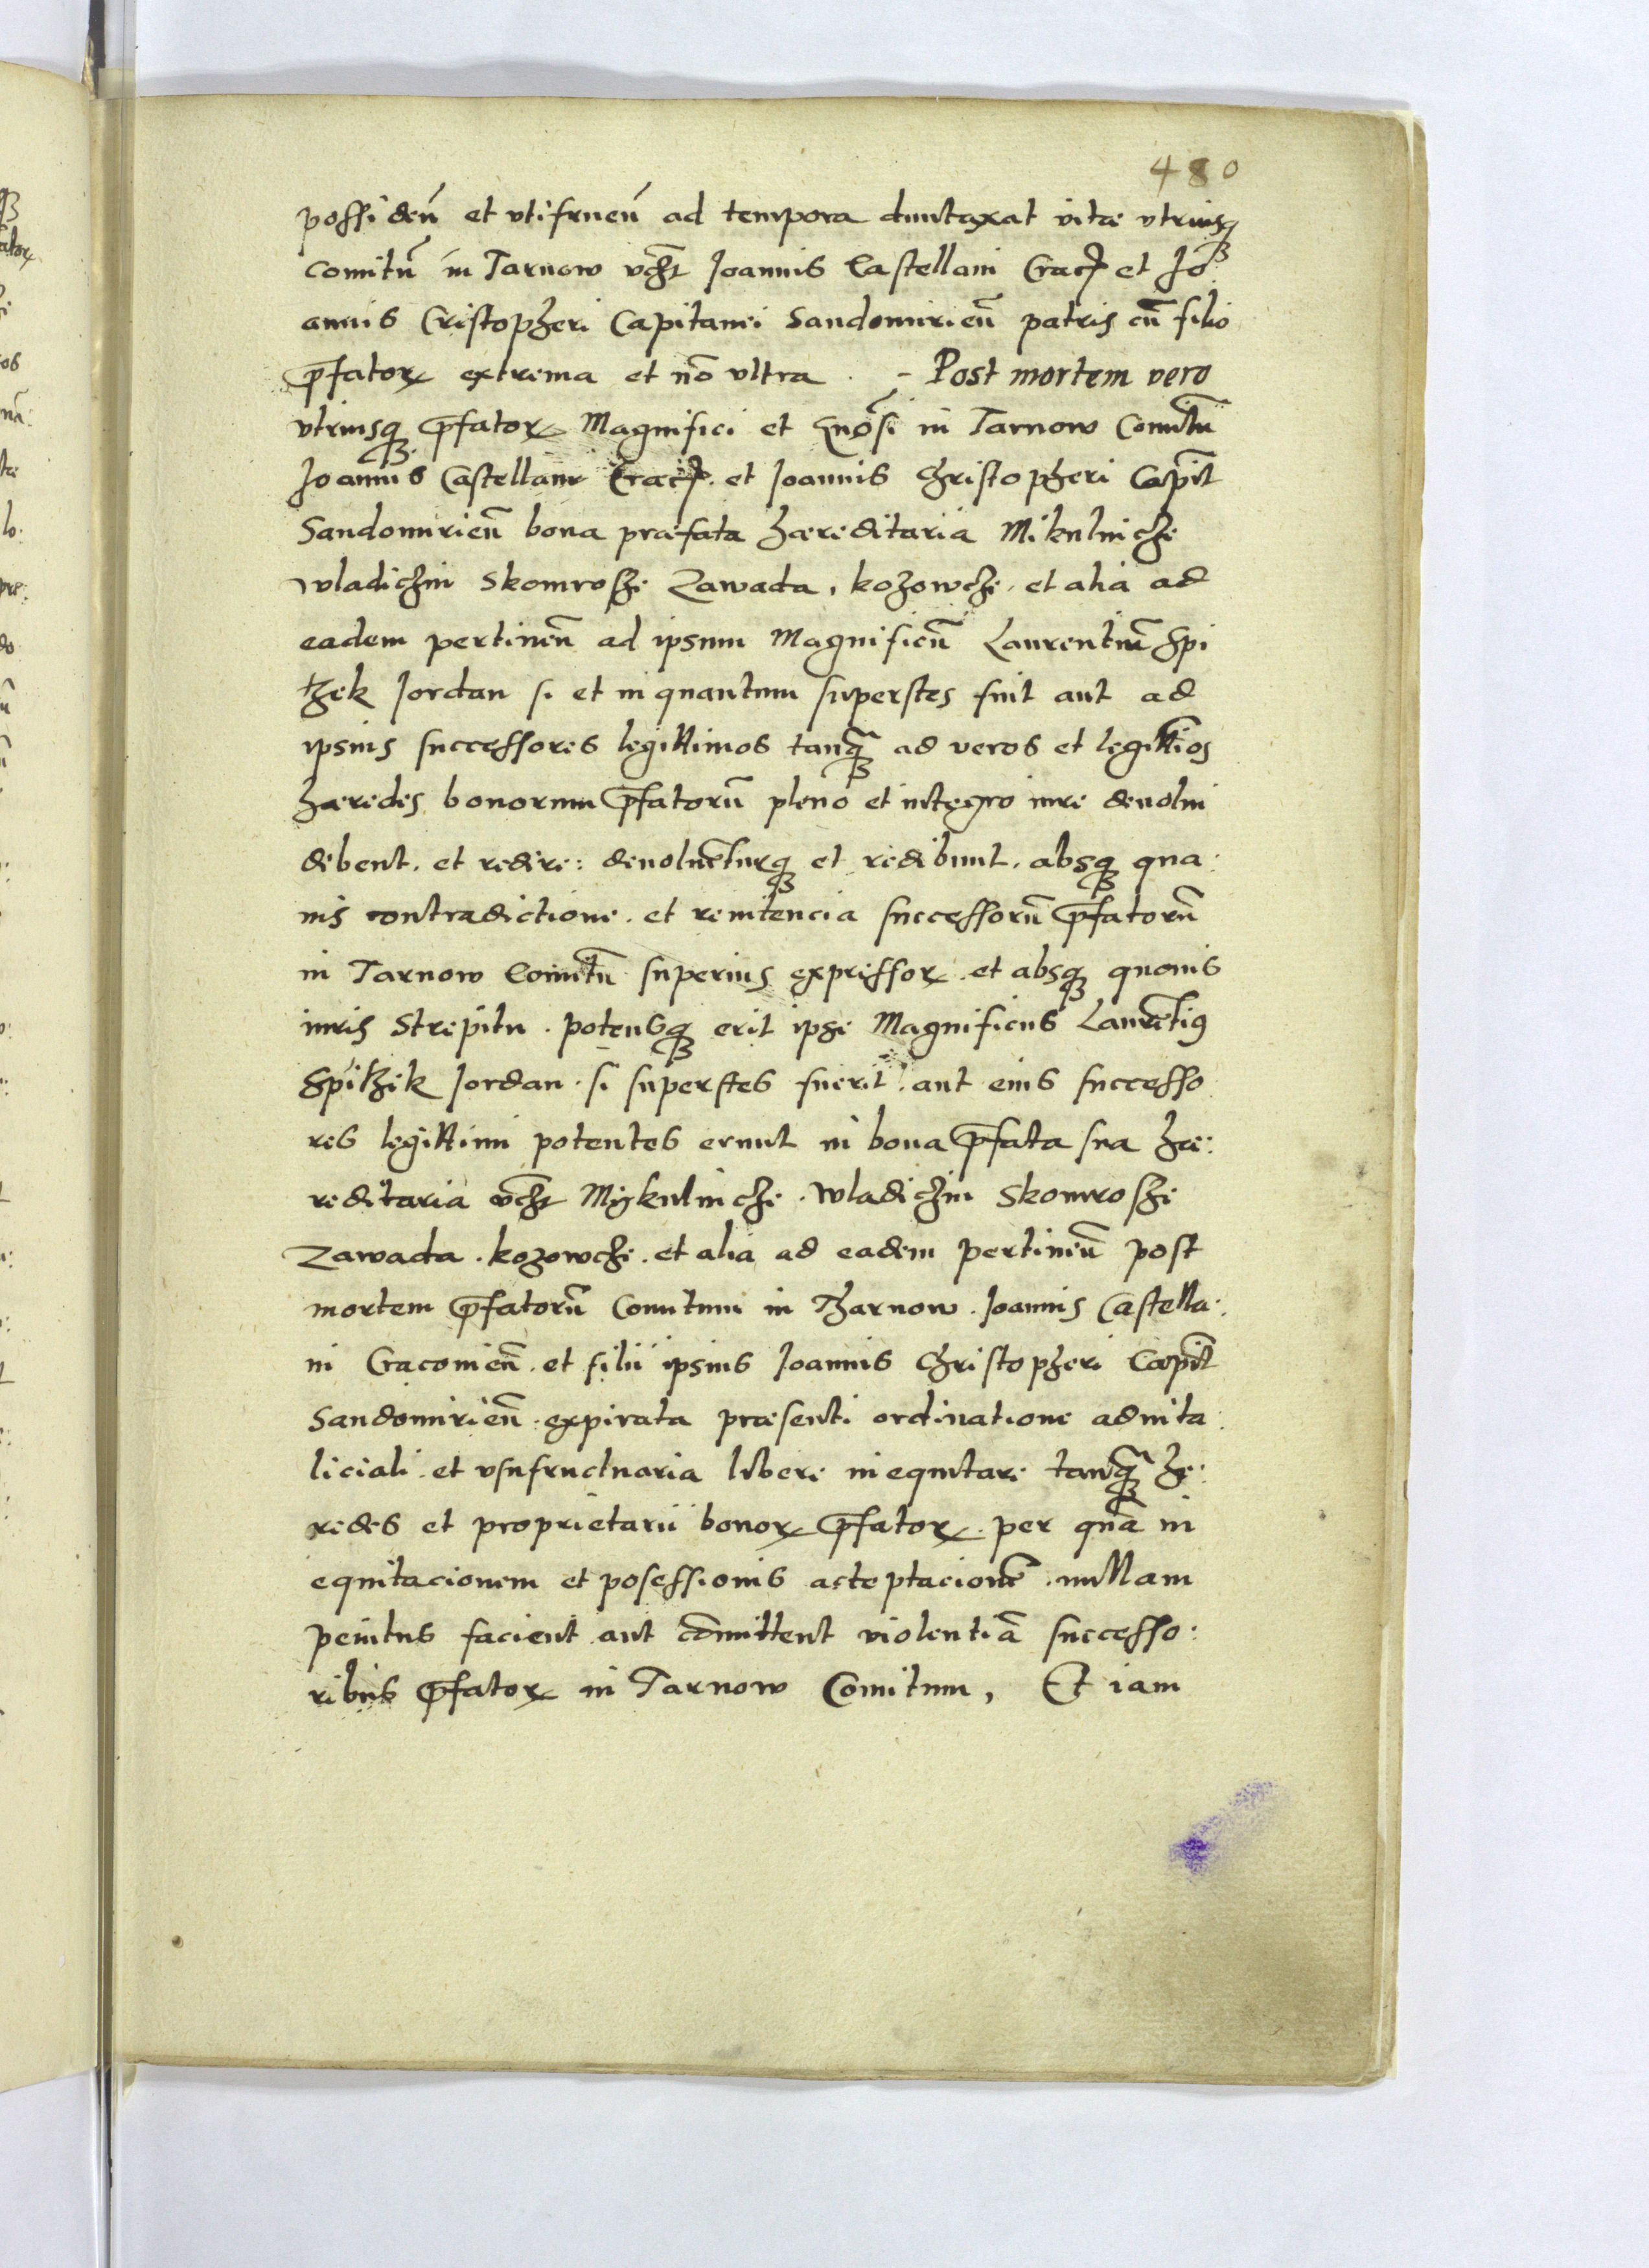 480
possideñ et vtifrueñ ad tempora duntaxat vitæ vtriusqꝫ
comitũ in Tarnow vcꝫt Joannis Castellani Cracꝭ et Jo
annis Cristopheri Capitanei Sandomirieñ patris cũ filio
p̃fatorꝝ extrema et nõ vltra . – Post mortem vero
vtriusqꝫ p̃fatorꝝ Magnifici et Gñosi in Tarnow Comitũ
Joannis Castellani Cracꝭ. et Joannis Christopheri Capit̃
Sandomirieñ bona præfata hæreditaria Mikulinche
Wladichin Skomroshe Zawada, kozowche. et alia ad
eadem pertineñ ad ipsum Magnificũ Laurentiũ Spi
tzek Jordan si et in quantum superstes fuit aut ad
ipsius successores legittimos tanq̃ꝫ ad veros et legittĩos
hæredes bonorum p̃fatorũ pleno et integro iure deuolui
debent. et redire: deuoluẽturqꝫ et redibunt. absqꝫ qua:
uis contradictione. et renitencia successorũ p̃fatorũ
in Tarnow Comitũ superius expressorꝝ. et absqꝫ quouis
iuris Strepitu . potensqꝫ erit ipse Magnificus Laurẽtiꝰ
Spitzek Jordan. si superstes fuerit. aut eius successo
res legittimi potentes erunt in bona p̃fata sua hæ:
reditaria vcꝫt Mÿkulinche. Wladichin Skomroshe
Zawada. kozowche. et alia ad eadem pertineñ post
mortem p̃fatorũ Comitum in Tharnow. Joannis Castella:
ni Cracouieñ. et filii ipsius Joannis Christopheri Capit̃
Sandomirieñ. expirata præsenti ordinatione aduita:
liciali. et vsufructuaria libere inequitare tanq̃ꝫ he:
redes et proprietarii bonorꝝ p̃fatorꝝ. per quã in
equitacionem et posessionis acceptacionẽ. nullam
penitus facient aut cõmittent violentiã successo:
ribus p̃fatorꝝ in Tarnow Comitum, Et iam